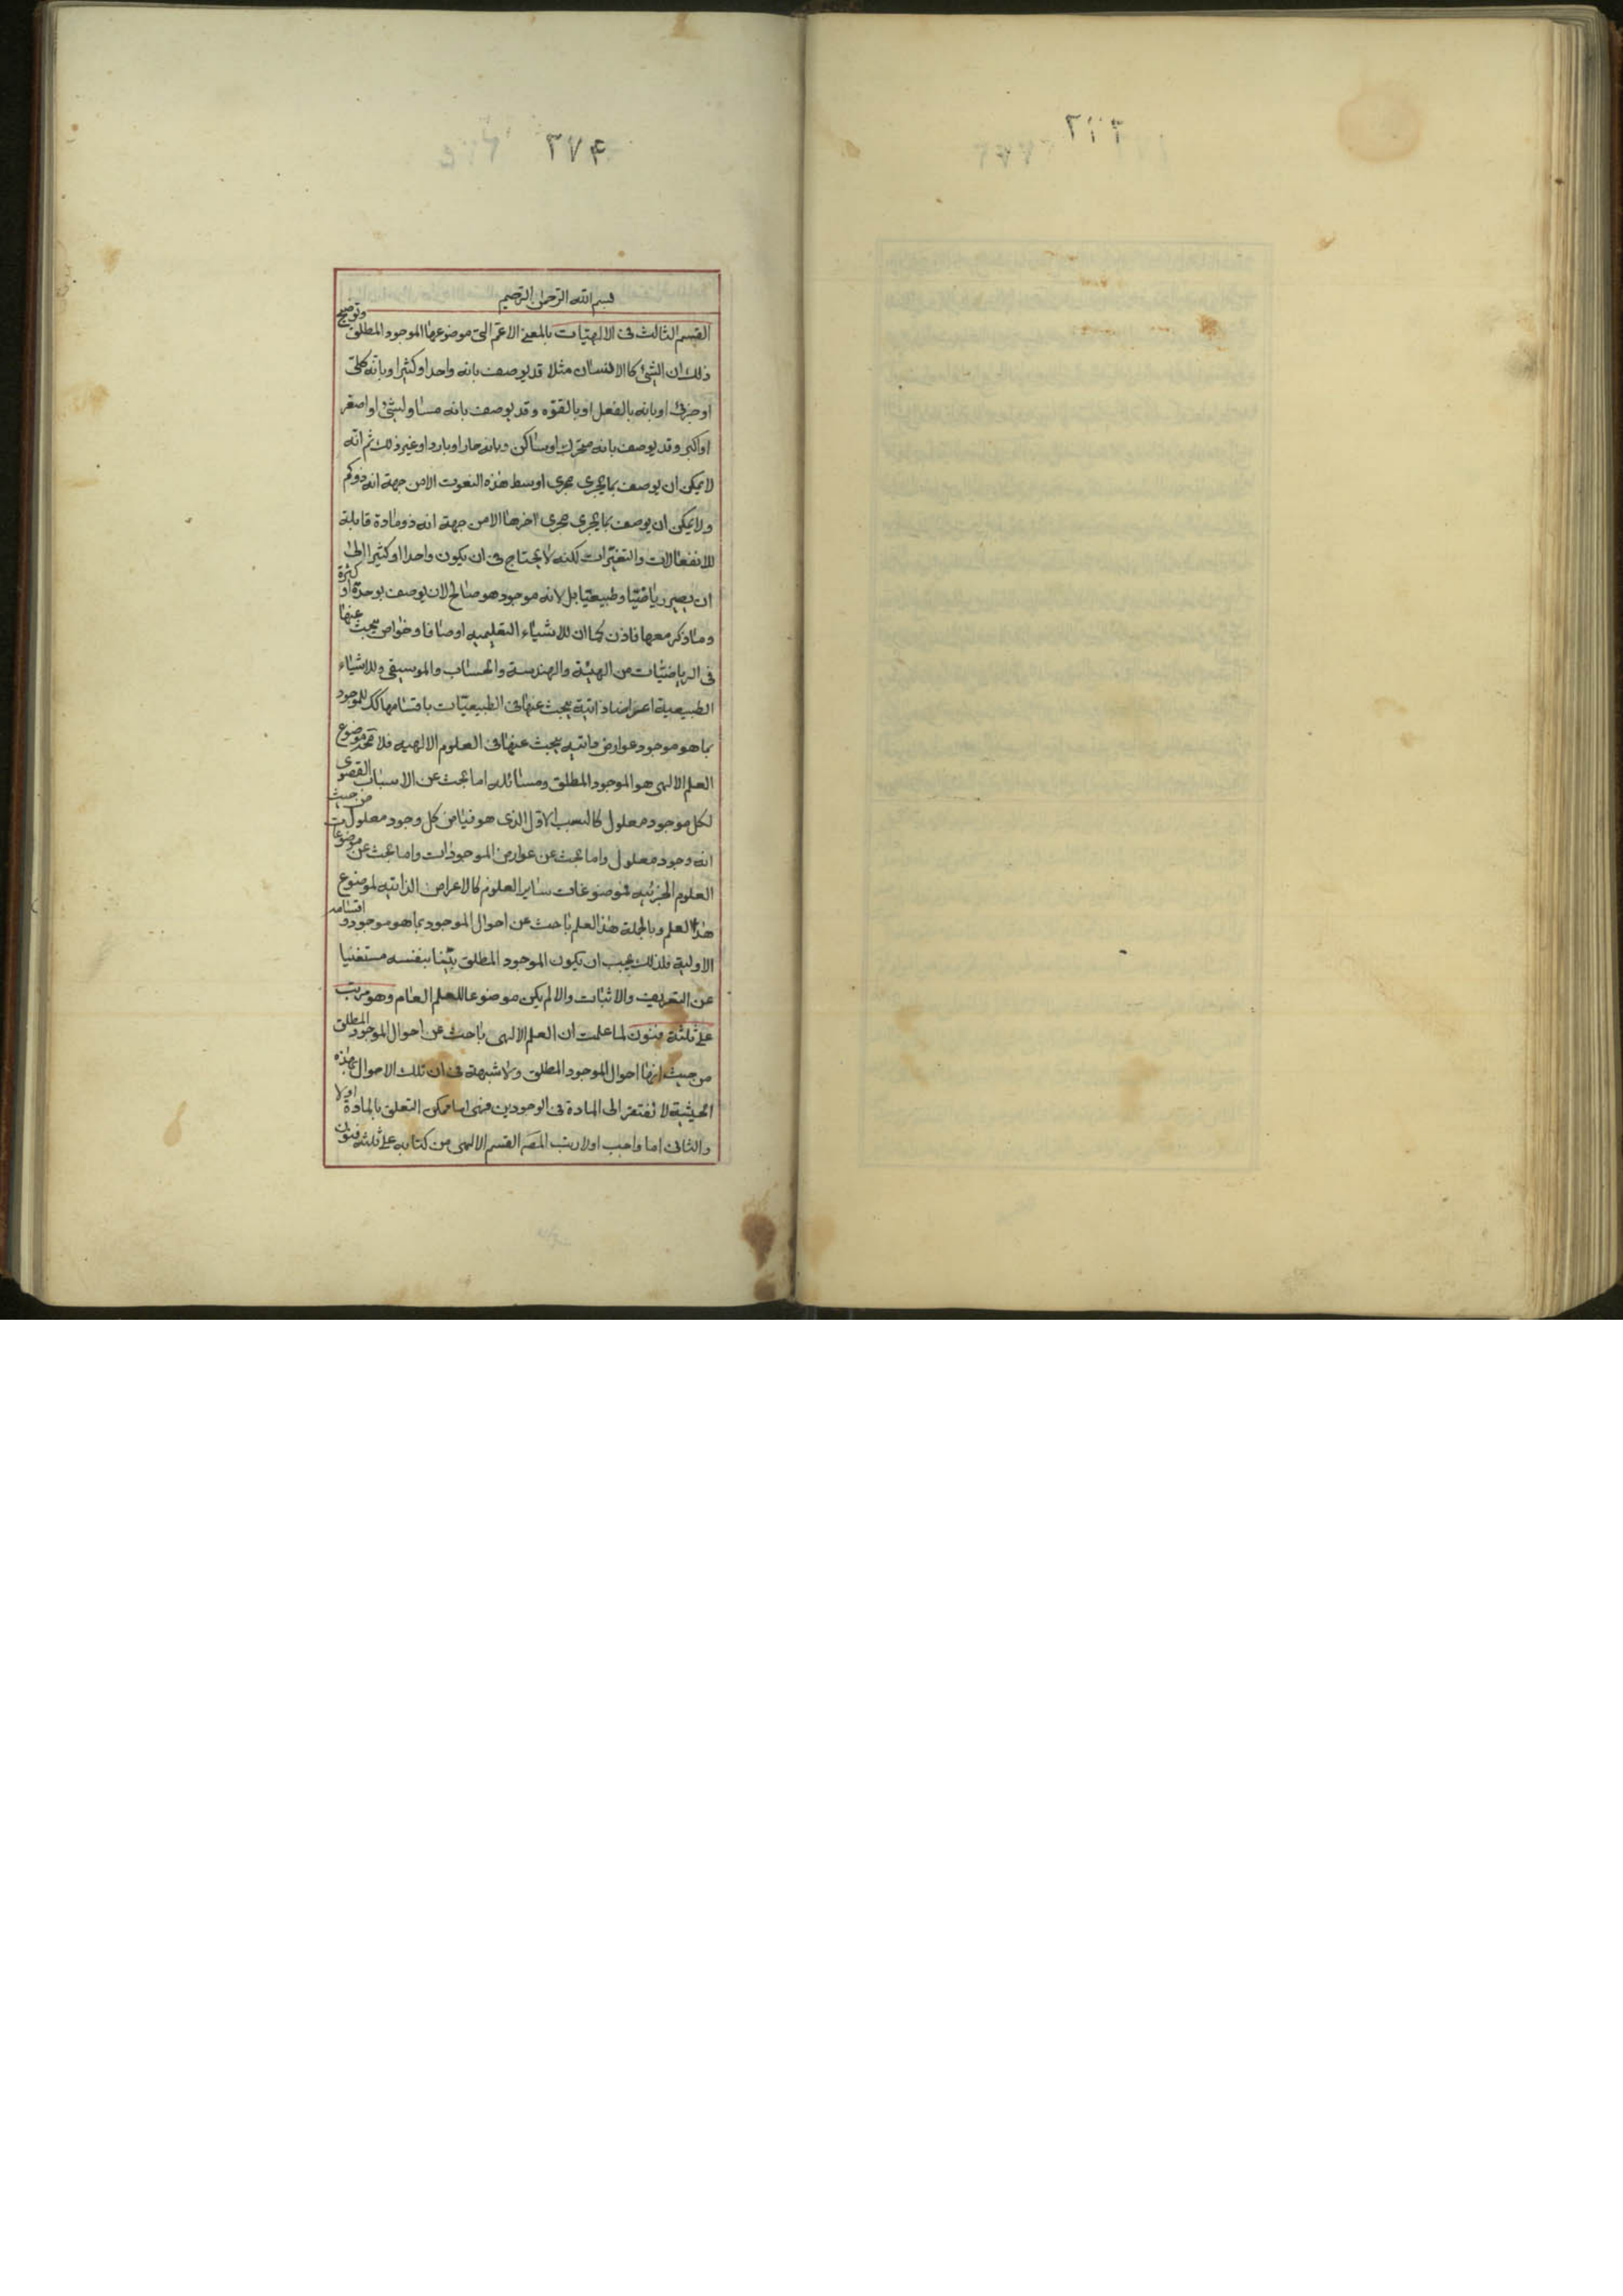 ٢٧٤
بسم الله الرحمن الرحيم
القسم الثالث فى الالهيات بالمعنى الاعم التى موضوعها الموجود المطلق وتوضيح
ذلك ان الشئ كالانسان مثلا قد يوصف بانه واحد او كثير او بانه كلى
او جزئى او بانه بالفعل او بالقوه وقد يوصف بانه مساو لشئ او اصغر
او اكبر وقد يوصف بانه متحرك او ساكن وبانه حار او بارد او غير ذلك ثم انه
لا يمكن ان يوصف بما يجرى مجرى اوسط هذه النعوت الا من جهة انه ذو كم
ولا يمكن ان يوصف بما يجرى مجرى اخرها الا من جهة انه ذو مادة قابلة
للانفعالات والتغيرات لكنه لا يحتاج فى ان يكون واحدا او كثيرا الى
ان يصير رياضيا وطبيعيا بل لانه موجود هو صالح لان يوصف بوحدة او كثرة
وما ذكر معها فاذن كما ان للاشياء التعليميه اوصافا وخواص يبحث عنها
فى الرياضيات من الهيئة والهندسة والحساب والموسيقى وللاشياء
الطبيعية اعراضا ذاتية يبحث عنها فى الطبيعيات باقسامها كك للموجود
بما هو موجود عوارض ذاتيه يبحث عنها فى العلوم الالهيه فلا محة موضوع
العلم الالهى هو الموجود المطلق ومسائله اما بحث عن الاسباب القصوى
لكل موجود معلول كالسبب الاول الذى هو فياض كل وجود معلول من حيث
انه وجود معلول واما بحث عن عوارض الموجودات واما بحث عن موضوعات
العلوم الجزئيه فموضوعات ساير العلوم كالاعراض الذاتيه لموضوع
هذا العلم وبالجملة هذا العلم باحث عن احوال الموجود بما هو موجود و اقسامه
الاولية فلذلك يجب ان يكون الموجود المطلق بينا بنفسه مستغنيا
عن التعريف والاثبات والا لم يكن موضوعا للعلم العام وهو مرتب
على ثلثة فنون لما علمت ان العلم الالهى باحث عن احوال الموجود المطلق
من حيث انها احوال الموجود المطلق ولا شبهة فى ان تلك الاحوال بهذه
الحيثية لا تفتقر الى المادة فى الوجودين فهى اما ممكن التعلق بالمادة اولا
والثانى اما واجب اولا رتب المصـ القسم الالهى من كتابه على ثلثه فنون